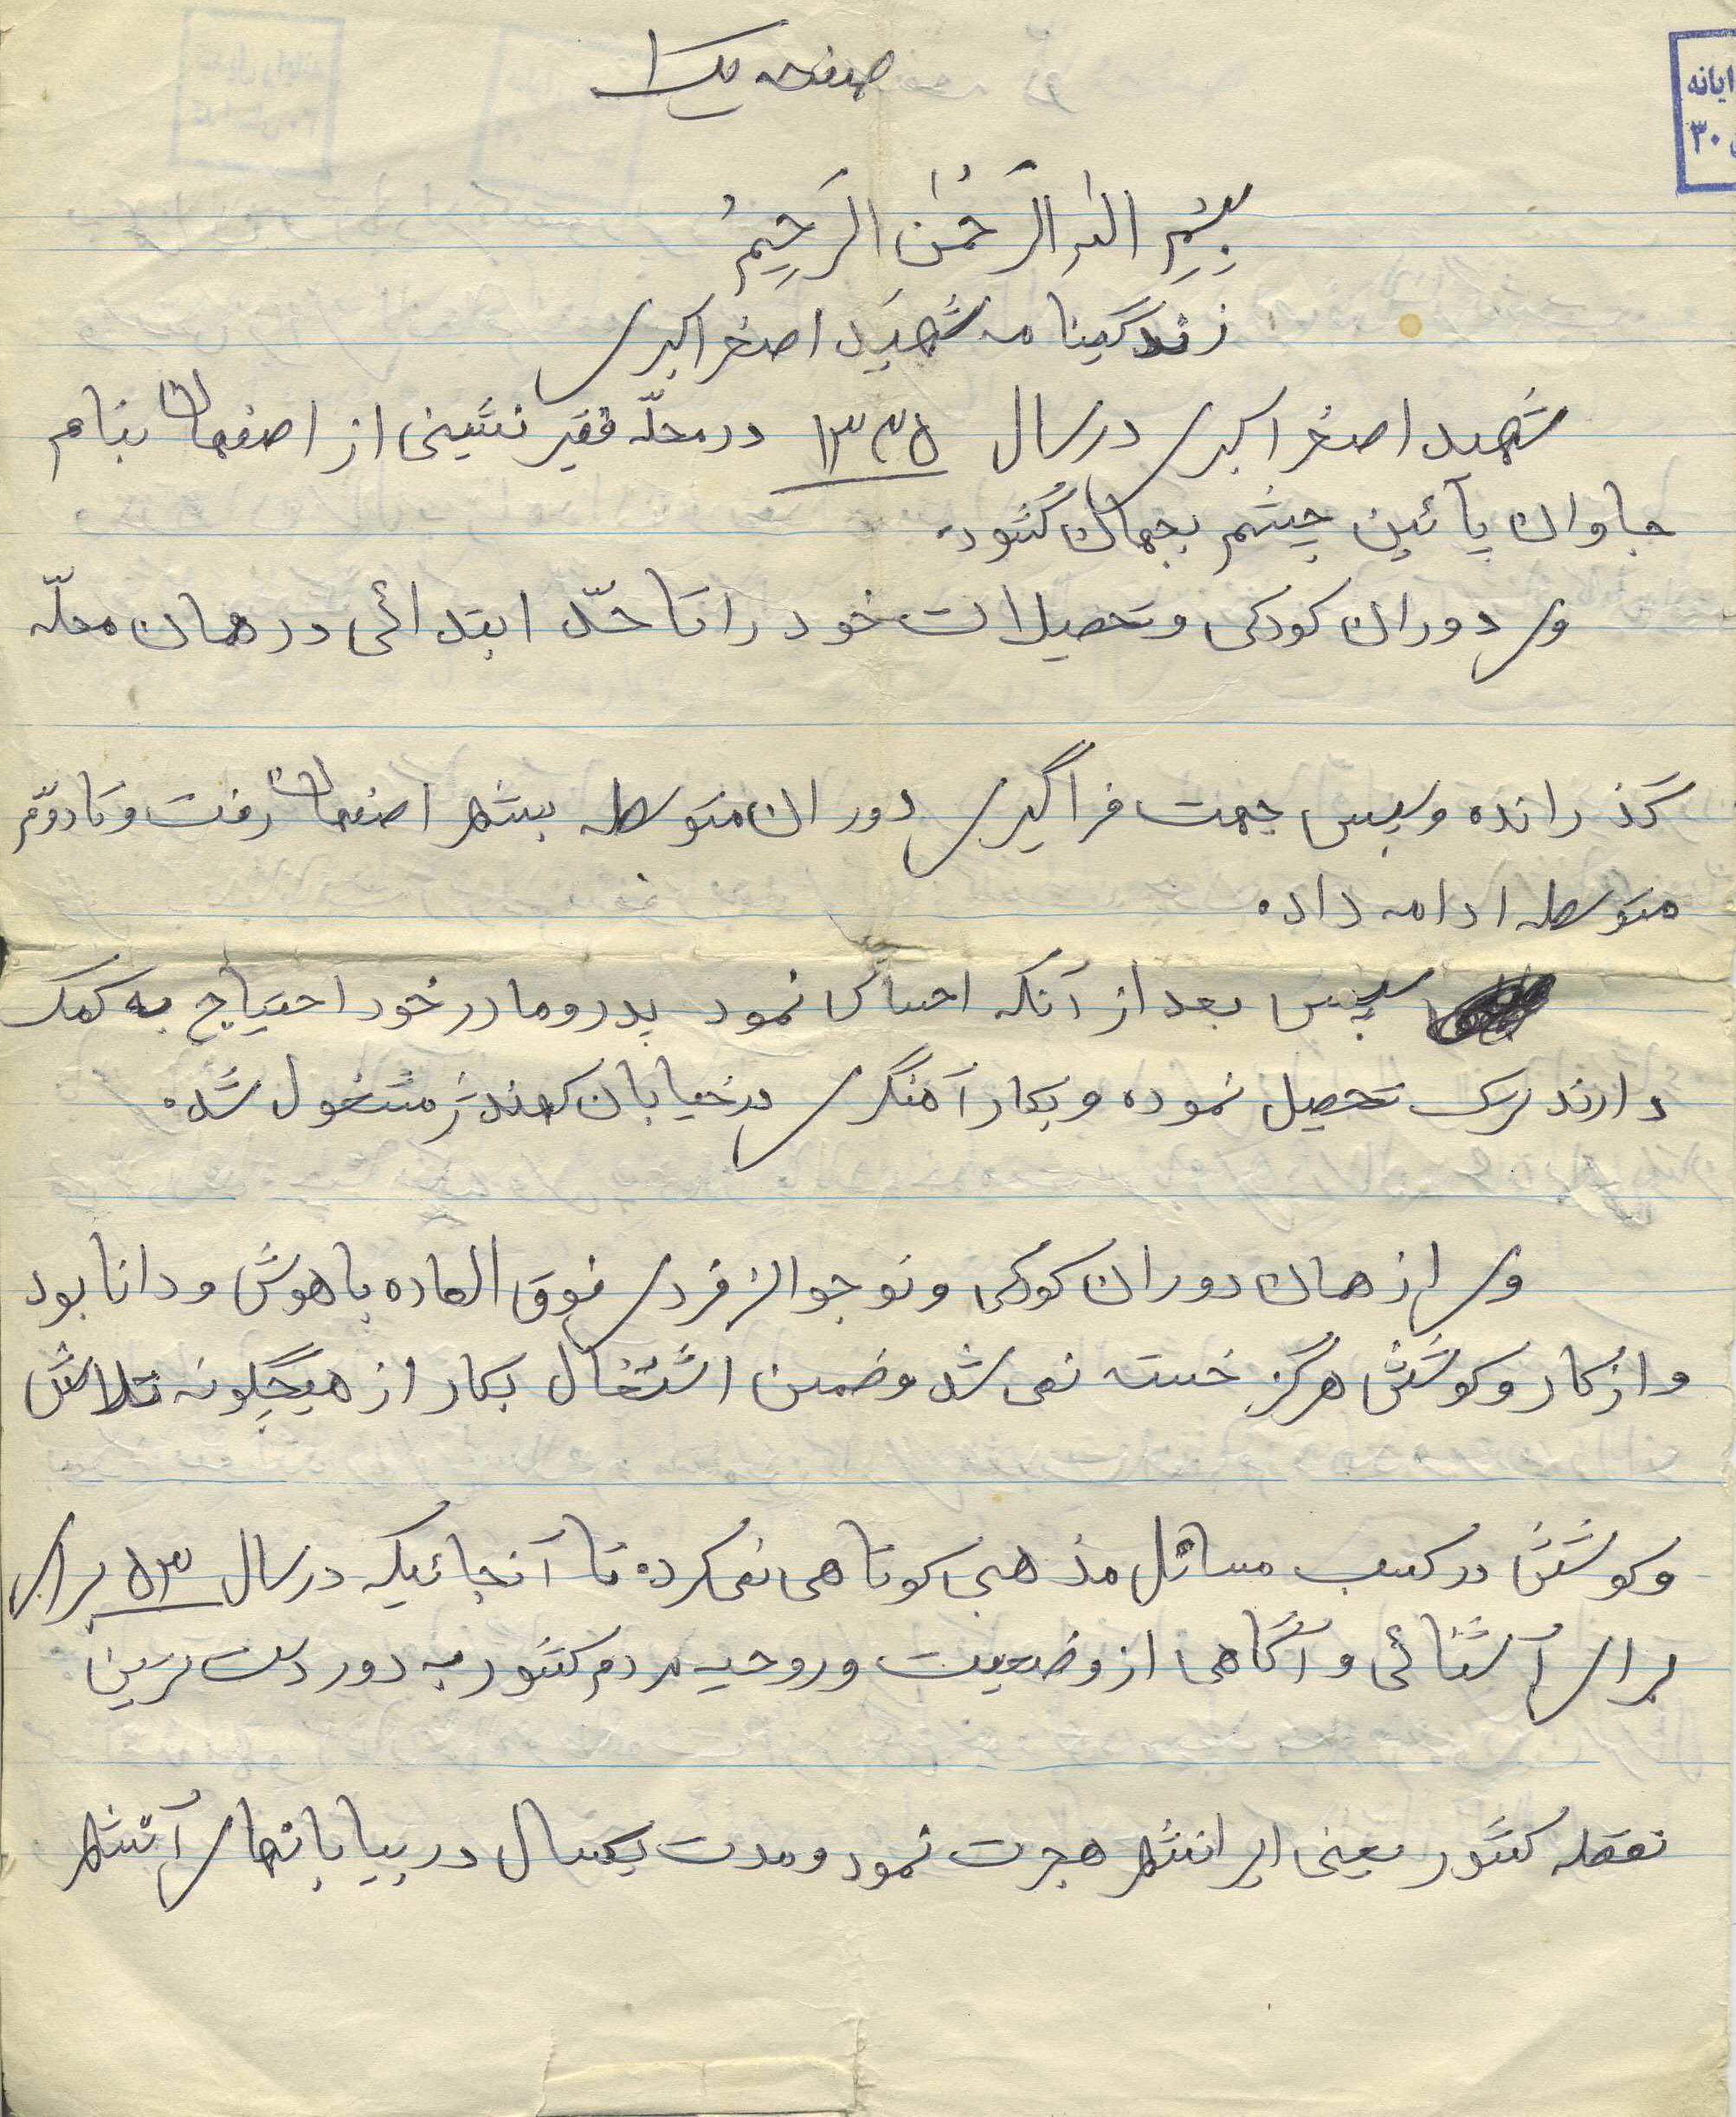 صفحه یک ۱
ایانه
۳۰
بِسْمِ اللهِ الرَّحْمٰنِ الرَّحِیمْ
زندگینامه شهید اصغر اکبری
شهید اصغر اکبری در سال ۱۳۳۵ در محلّه فقیر نشینی از اصفهان بنام
جاوان پائین چشم بجهان گشود.
وی دوران کودکی و تحصیلات خود را تا حدّ ابتدائی در همان محلّه
گذرانده و سپس جهت فراگیری دوران متوسطه بشهر اصفهان رفت و تا دوّم
متوسطه ادامه داد.
سپس بعد از آنکه احساس نمود پدر و مادر خود احتیاج به کمک
دارند ترک تحصیل نموده و بکار آهنگری در خیابان کهندژ مشغول شد.
وی از همان دوران کودکی و نوجوانی فردی فوق العاده باهوش و دانا بود
و از کار و کوشش هرگز خسته نمی شد و ضمن اشتغال بکار از هیچگونه تلاش
و کوشش در کسب مسائل مذهبی کوتاهی نمی کرد. تا آنجائیکه در سال ۵۳ برای
برای آشنائی و آگاهی از وضعیت و روحیه مردم کشور به دور دست ترین
نقطه کشور یعنی ایرانشهر هجرت نمود و مدت یکسال در بیابانهای آتشها